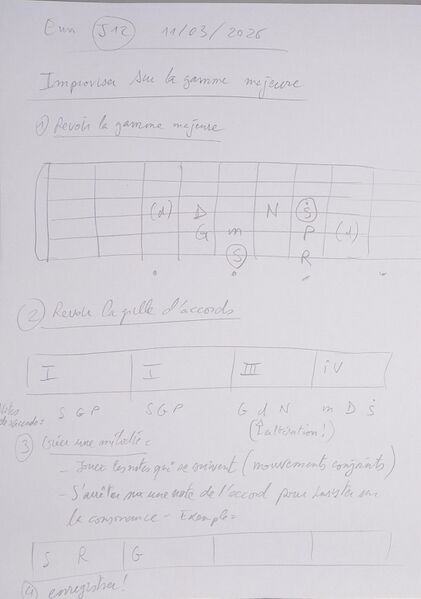 S12 11/03/2026
Improviser sur la gamme majeure
1) Revoir la gamme majeure
(d) D N S
G m P (d)
S R
2) Revoir la grille d'accords
I I III iv
S G P S G P G d N m D S
(altération!)
3) Créer une mélodie :
- Jouer les notes qui se suivent (mouvements conjoints)
- S'arrêter sur une note de l'accord pour insister sur
la consonance - Exemple =
S R G
4) enregistrer!